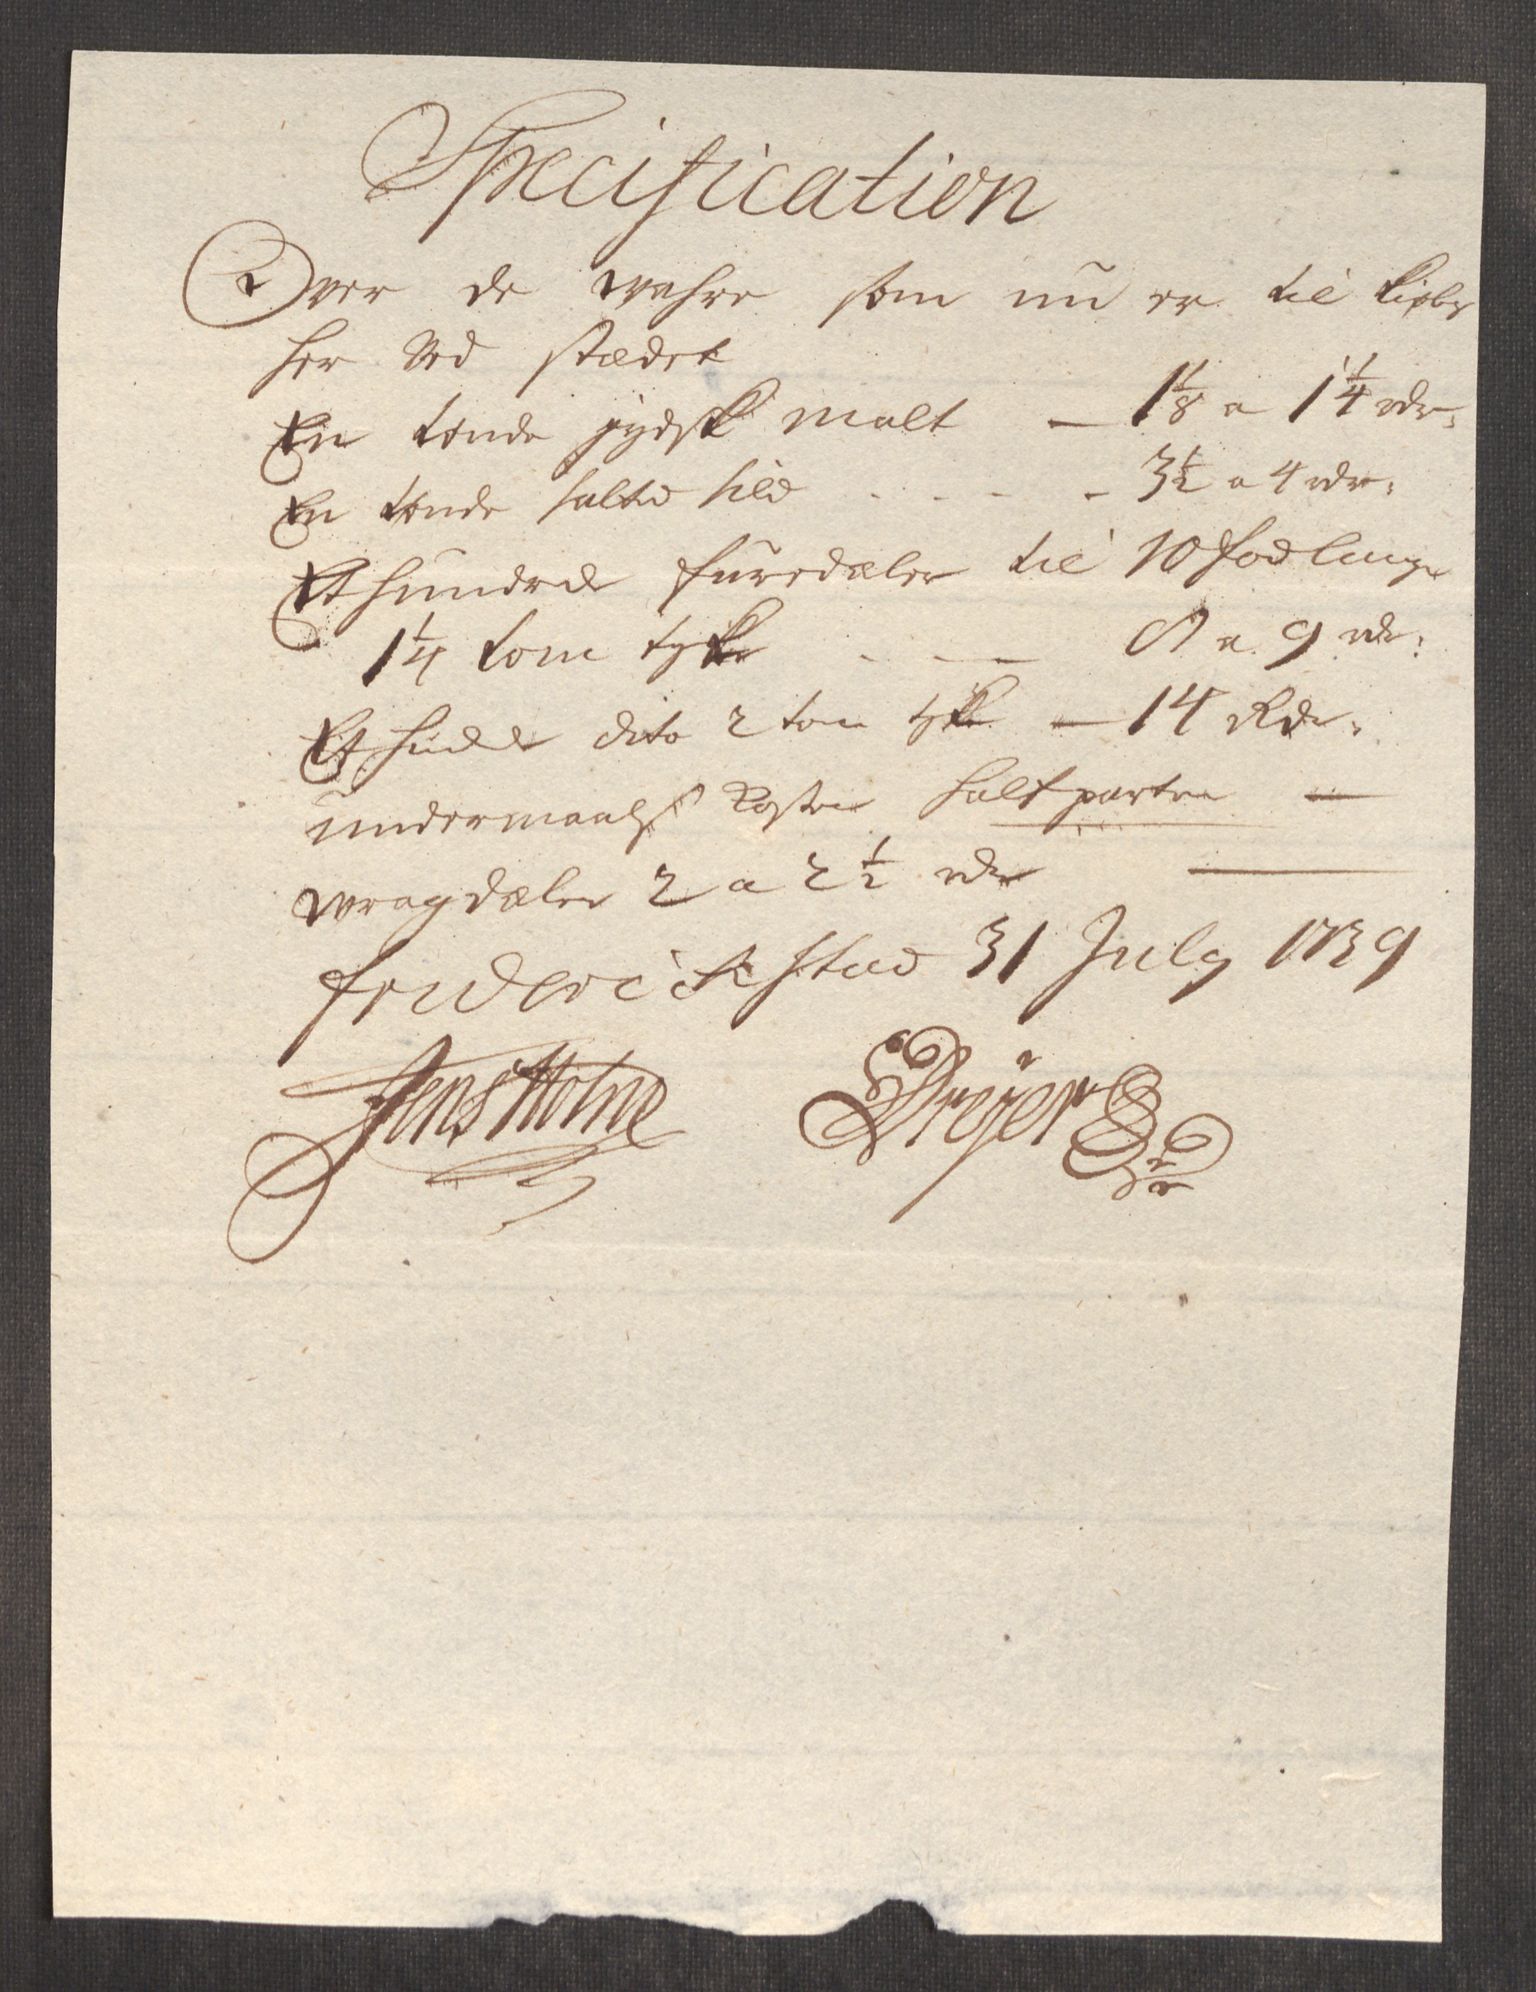 Specification
Over de wahre som nu er til kiøbs
her Ved stædet
En tønde jydsk malt — 1 1/8 a 1 1/4 rdr:
En tønde salted sild . . . . - 3 1/2 a 4 rdr:
Et hundrede furedæler til 10 fod lange
1 1/4 tom tykke . . — 8 a 9 rdr:
Et hundrede dito 2 tom tykke — 14 Rdr:
undermaals koster halfparten —
wragdæler 2 a 2 1/2 rdr —
friderichstad 31 July 1739
Jens Holme
Dreÿer